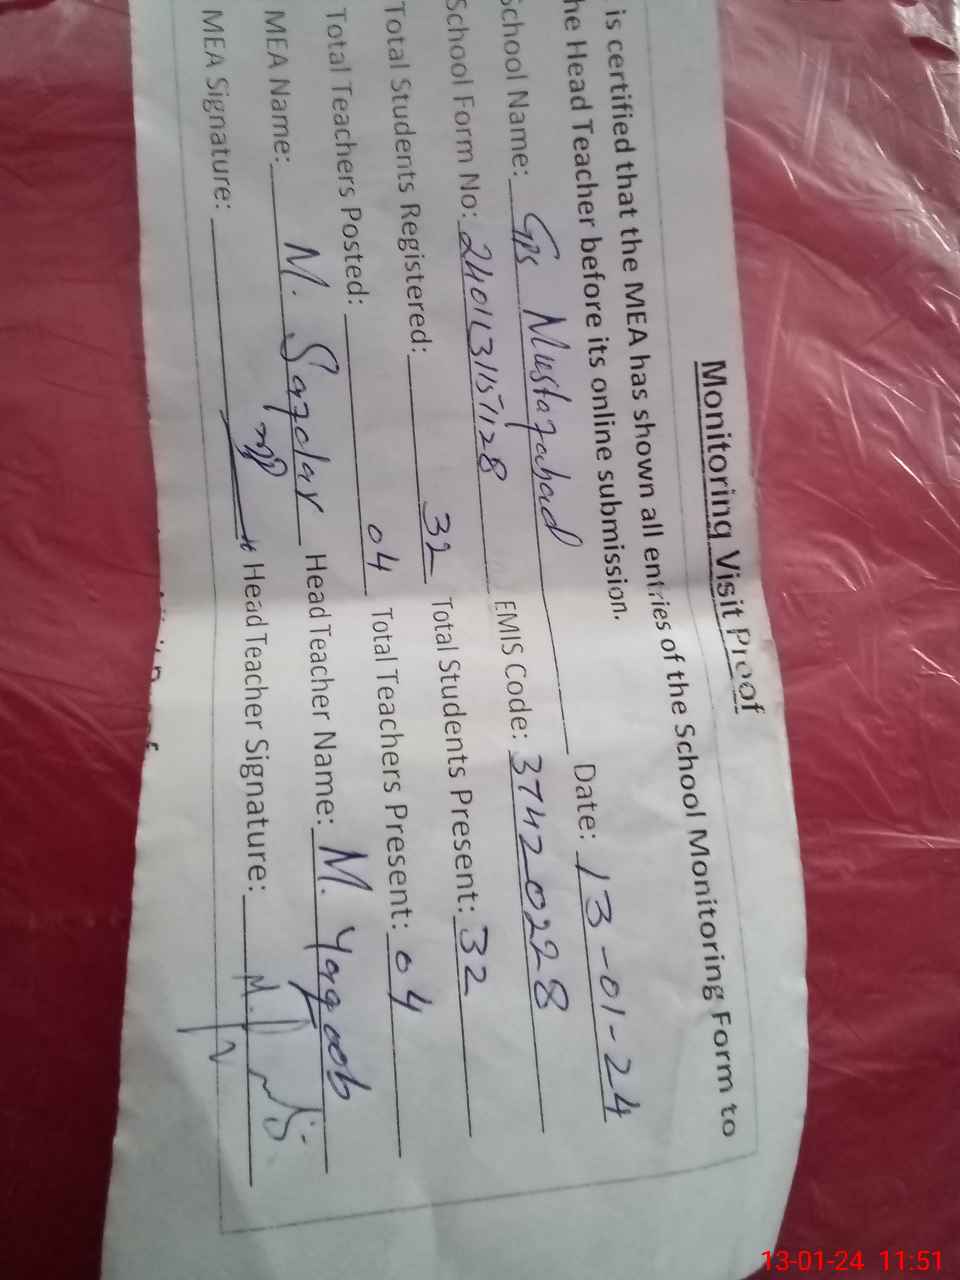 Monitoring Visit Proof
is certified that the MEA has shown all entries of the School Monitoring Form to
he Head Teacher before its online submission.
School Name: GPS Mustafabad Date: 13-01-24
School Form No: 2401131157128 EMIS Code: 37420228
Total Students Registered: 32 Total Students Present: 32
Total Teachers Posted: 04 Total Teachers Present: 04
MEA Name: M. Safdar Head Teacher Name: M. Yaqoob
MEA Signature: Head Teacher Signature:
13-01-24 11:51